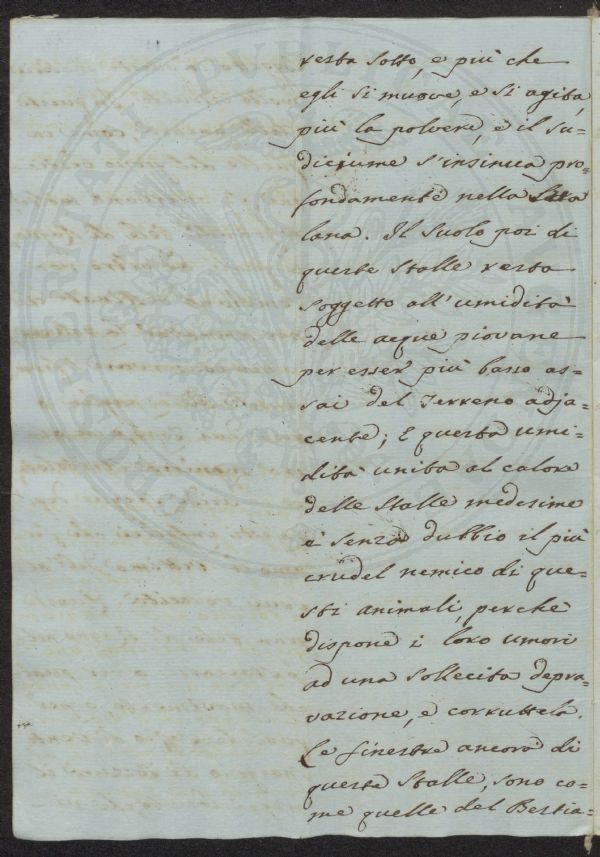 resta sotto, e più che
egli si muove, e si agita,
più la polvere, e il su-
diciume s'insinua pro-
fondamente nella sua
lana. Il Suolo poi di
queste Stalle resta
soggetto all'umidità
delle acque piovane
per esser più basso as-
sai del Terreno adja-
cente; E questa umi-
dità unita al calore
delle Stalle medesime
è senza dubbio il più
crudel nemico di que-
sti animali, perche
dispone i loro umori
ad una sollecita depra-
vazione, e corruttela.
Le finestre ancora di
queste Stalle, sono co-
me quelle del Bestia-